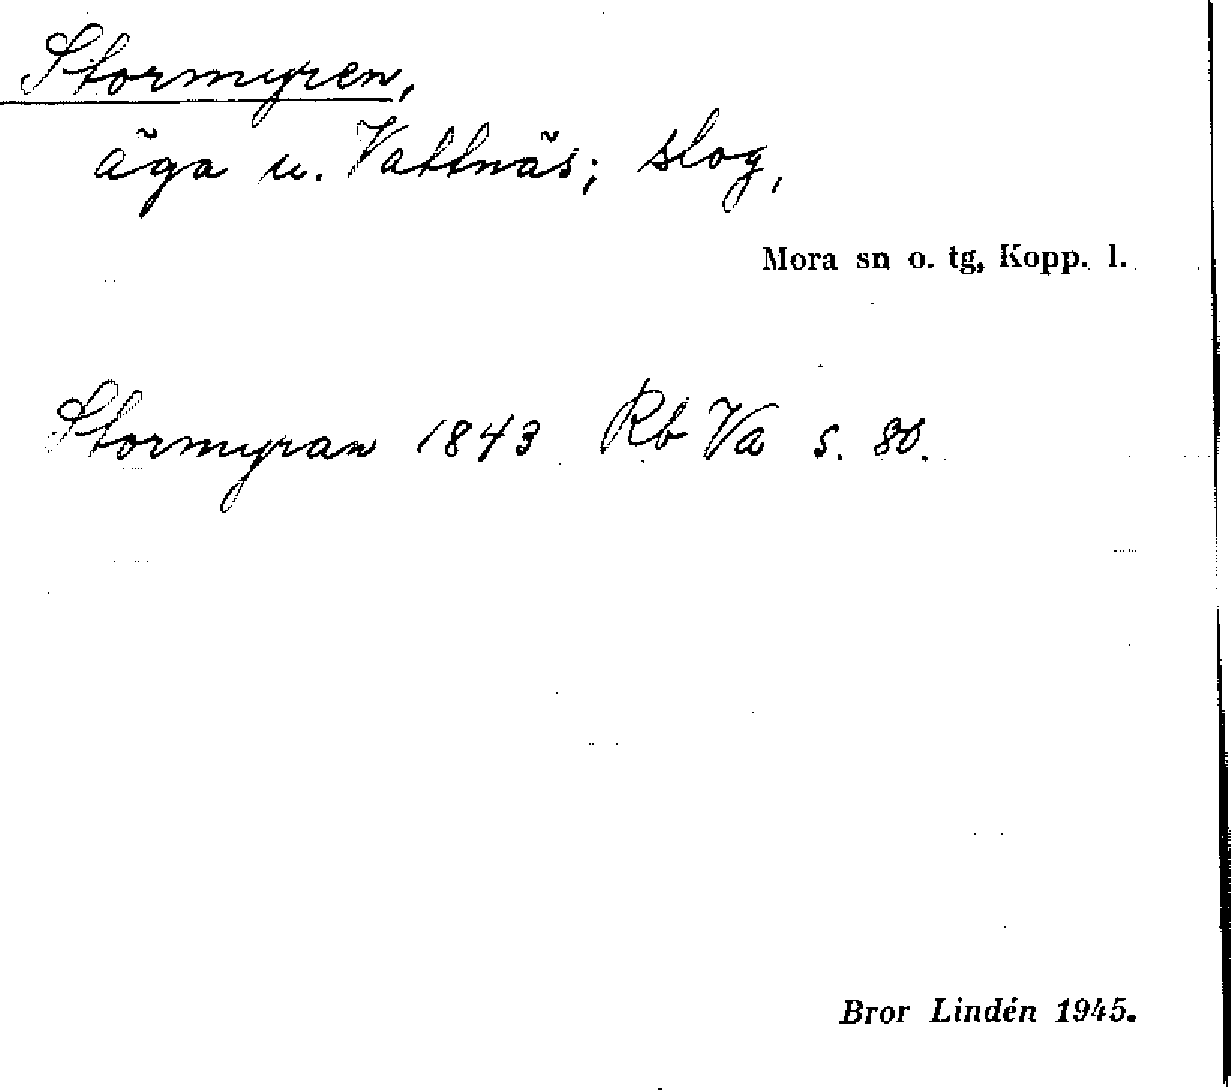 Stormyren,
äga u. Vattnäs; slog,
Mora sn o. tg, Kopp. l.
Stormyran 1843 Rb Va s. 80.
Bror Lindén 1945.